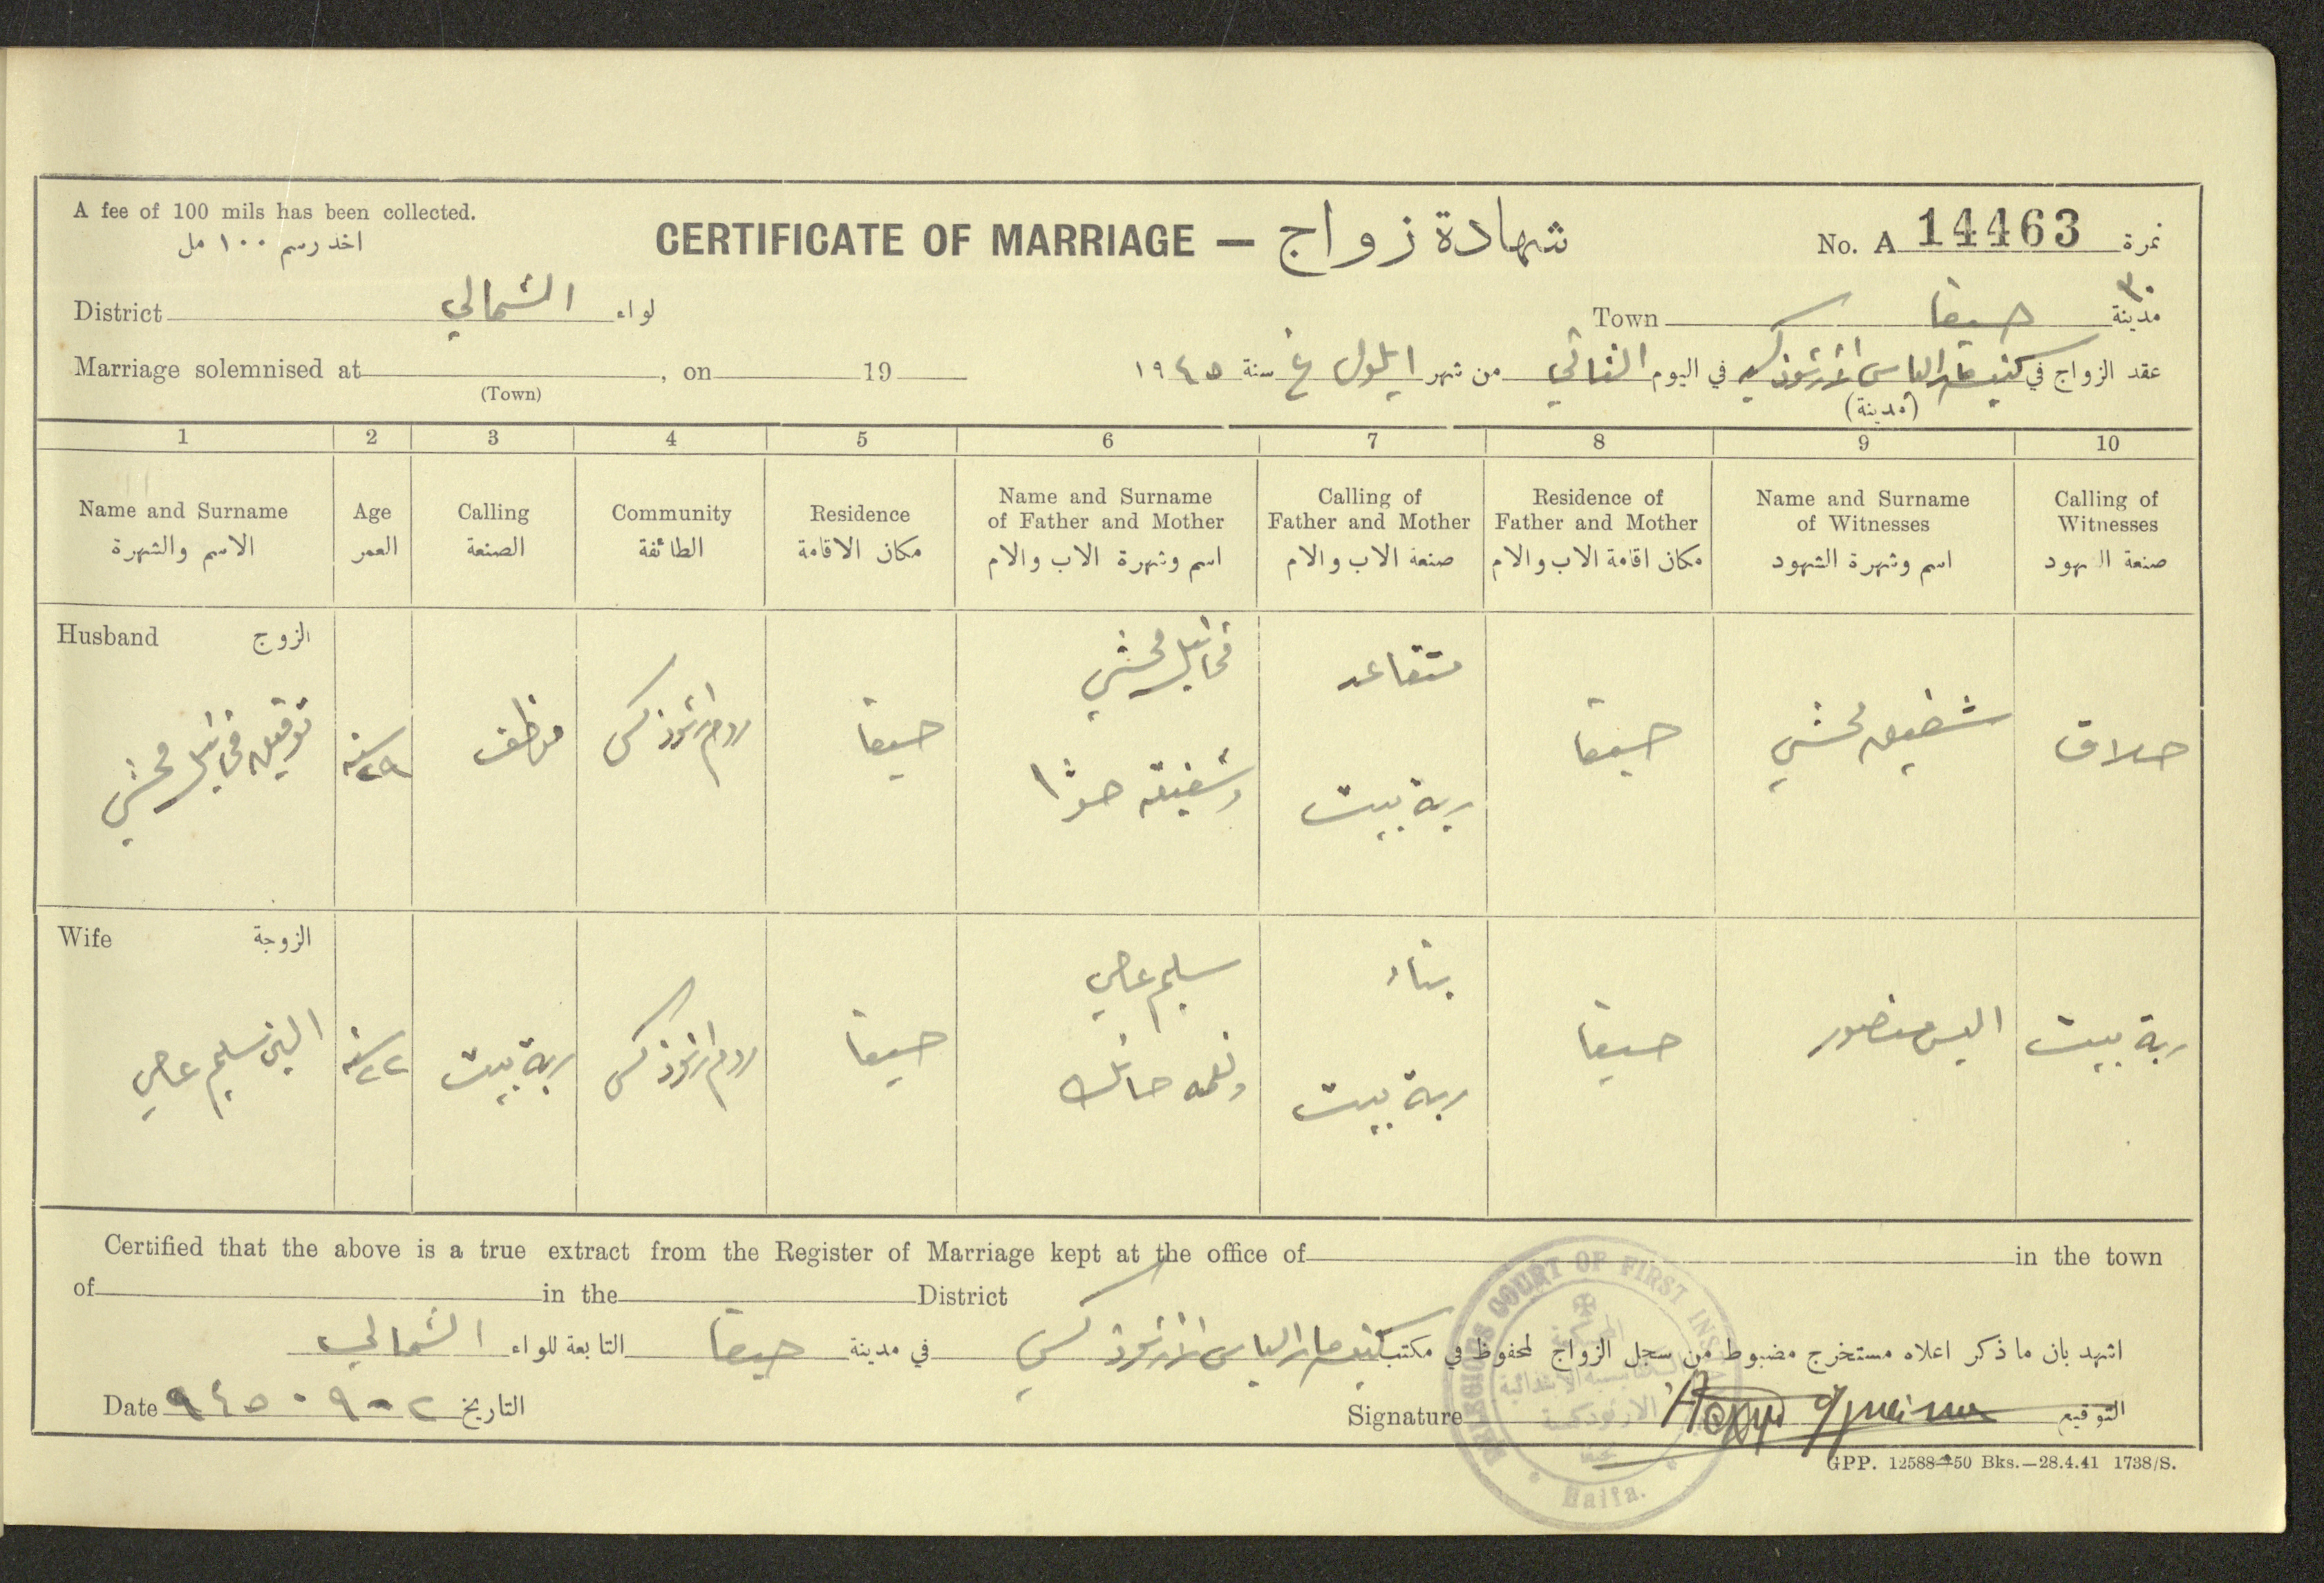 A fee of 100 mils has been collected.
اخذ رسم ١٠٠ مل
CERTIFICATE OF MARRIAGE — شهادة زواج
No. A 14463 نمرة
٣٠
District الشمالي لواء
Town حيفا مدينة
Marriage solemnised at , on 19
(Town)
عقد الزواج في كنيسة مار الياس الارثوذكسية في اليوم الثاني من شهر ايلول غ سنة ١٩٤٥
(مدينة)
1 2 3 4 5 6 7 8 9 10
Name and Surname الاسم والشهرة
Age العمر
Calling الصنعة
Community الطائفة
Residence مكان الاقامة
Name and Surname of Father and Mother اسم وشهرة الاب والام
Calling of Father and Mother صنعة الاب والام
Residence of Father and Mother مكان اقامة الاب والام
Name and Surname of Witnesses اسم وشهرة الشهود
Calling of Witnesses صنعة الشهود
Husband الزوج
توفيق مخائيل محشي
٢٩ سنة
موظف
روم ارثوذكس
حيفا
مخائيل محشي
وشفيقه حوا
متقاعد
ربة بيت
حيفا
شفيق محشي
حلاق
Wife الزوجة
سليم عاصي
٢٢ سنة
ربة بيت
روم ارثوذكس
حيفا
سليم عاصي
ونعمه حائك
بناء
ربة بيت
حيفا
اليس منصور
ربة بيت
Certified that the above is a true extract from the Register of Marriage kept at the office of in the town
of in the District
اشهد بان ما ذكر اعلاه مستخرج مضبوط من سجل الزواج المحفوظ في مكتب كنيسة مار الياس الارثوذكسي في مدينة حيفا التابعة للواء الشمالي
Date ٢-٩-٩٤٥ التاريخ
Signature التوقيع
RELIGIOUS COURT OF FIRST INS
الارثوذكسية
Haifa.
GPP. 12588—50 Bks.—28.4.41 1738/S.